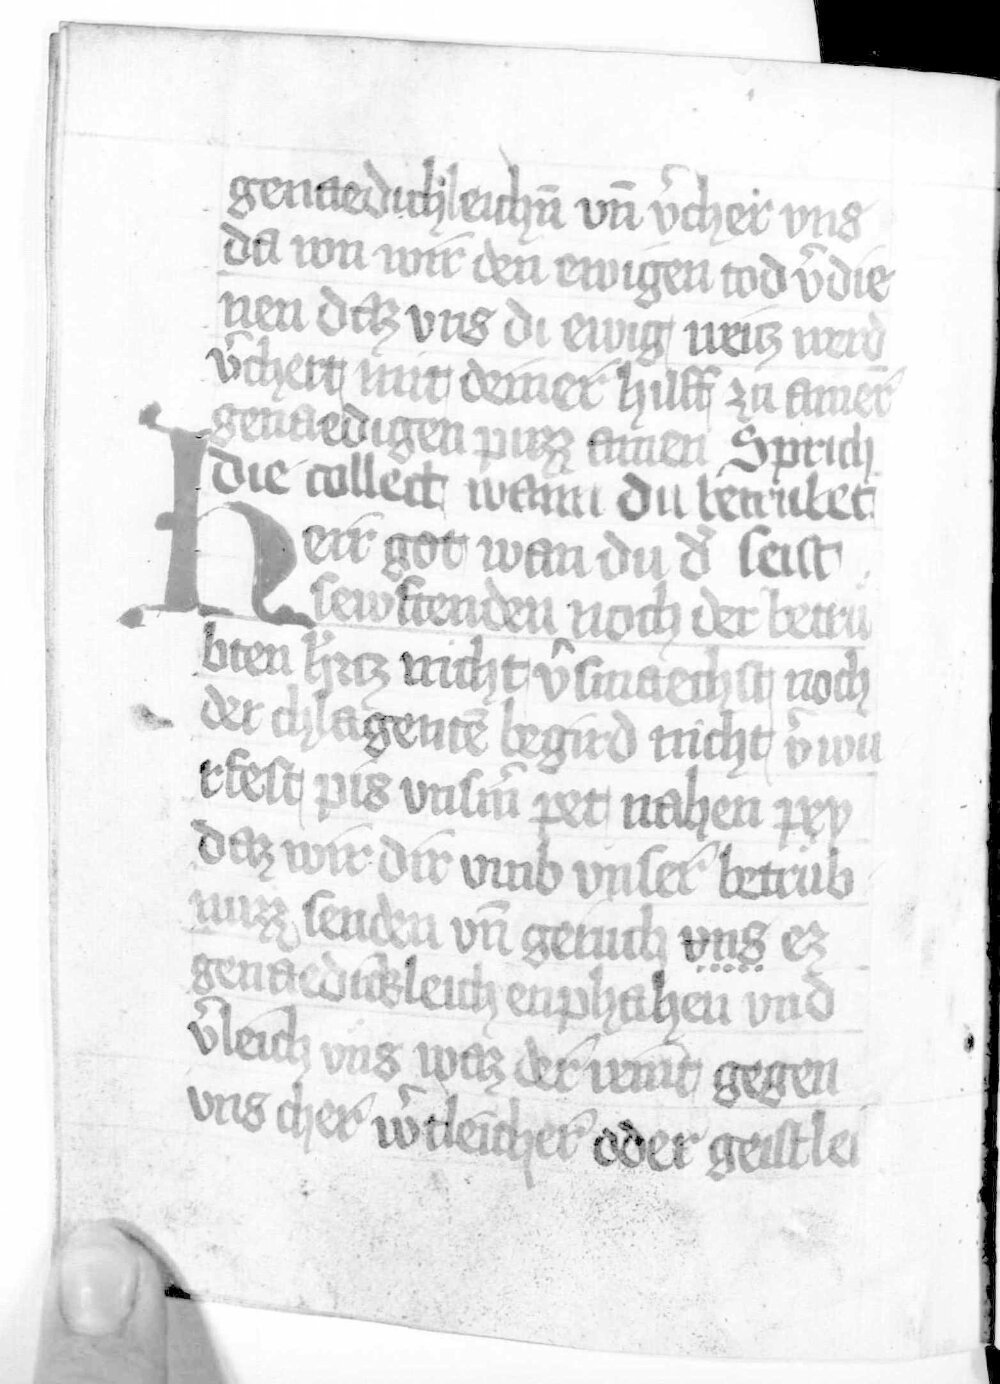 genaedichleichn̄ vn̄ v̄cher vns
da von wir den ewigen tod v̄die
nen daz vns di ewig weitz werd
v̄chert mit deiner hilff zu ainer
genaedigen puzz amen Sprich
die collect wann du betrubet
Herr got wan du d̄ seist
sewftenden noch der betru
bten h̄rcz nicht v̄smaechst noch
der chlagentē begird nicht v̄wu
rfest pis vnsm̄ pet nahen pey
daz wir dir vmb vnser betrub
nuzz senden vn̄ geruch vns ez
genaedickleich enphahen vnd
v̄leich vns waz der veint gegen
vns cher w̄tleicher oder geistlei